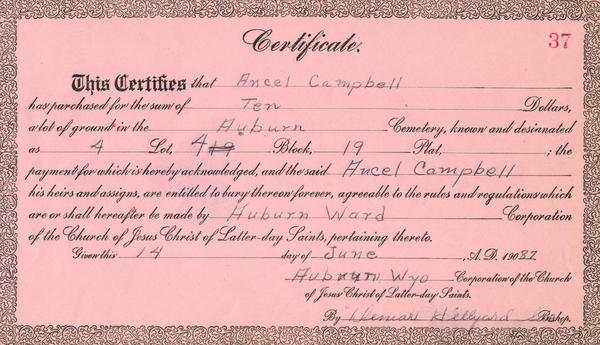 37
Certificate.
This Certifies that Ancel Campbell
has purchased for the sum of Ten Dollars,
a lot of ground in the Auburn Cemetery, known and designated
as 4 Lot, 4 Block, 19 Plat, ; the
payment for which is hereby acknowledged, and the said Ancel Campbell
his heirs and assigns, are entitled to bury thereon forever, agreeable to the rules and regulations which
are or shall hereafter be made by Auburn Ward Corporation
of the Church of Jesus Christ of Latter-day Saints, pertaining thereto.
Given this 14 day of June , A. D. 1982
Auburn Wyo Corporation of the Church
of Jesus Christ of Latter-day Saints.
By Hillyard Bishop.